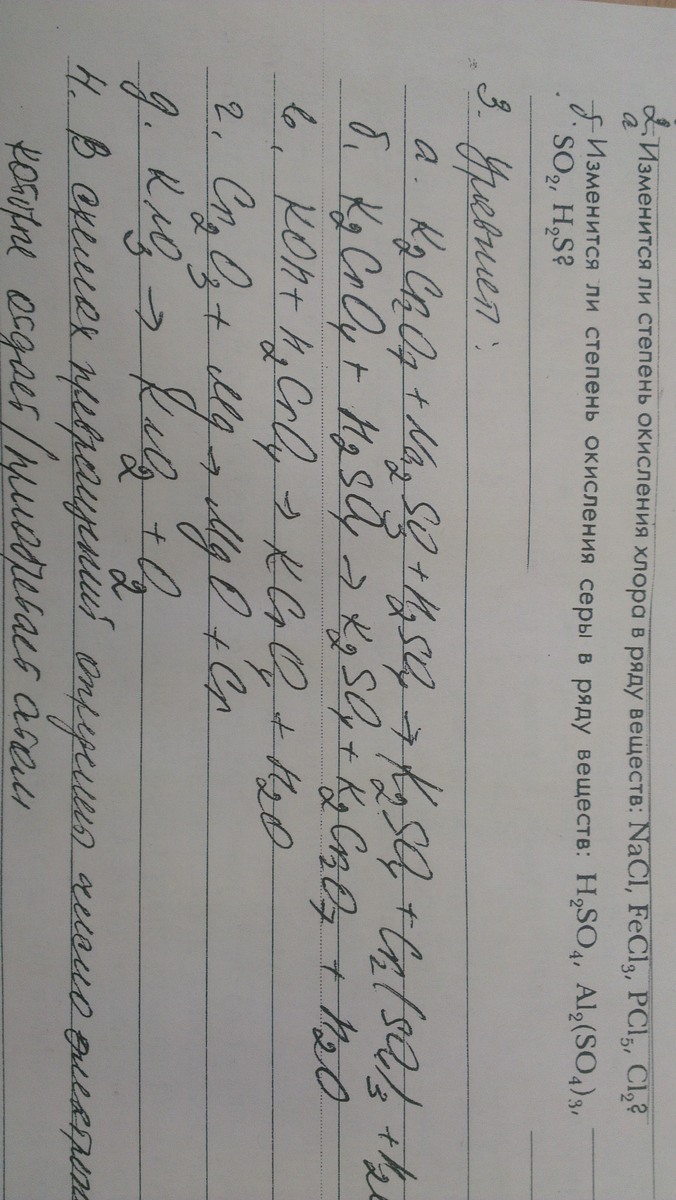 2. Изменится ли степень окисления хлора в ряду веществ: NaCl, FeCl₃, PCl₅, Cl₂?
а
б. Изменится ли степень окисления серы в ряду веществ: H₂SO₄, Al₂(SO₄)₃,
SO₂, H₂S?
3. Уравнять:
а. K₂Cr₂O₇ + Na₂SO₃ + H₂SO₄ → K₂SO₄ + Cr₂(SO₄)₃ + H₂
б. K₂CrO₄ + H₂SO₄ → K₂SO₄ + K₂Cr₂O₇ + H₂O
в. KOH + H₂CrO₄ → KCrO₄ + H₂O
г. Cr₂O₃ + Mg → MgO + Cr
д. KNO₃ → KNO₂ + O₂
4. В схемах превращений определить число электрон
которые отдает/ атом